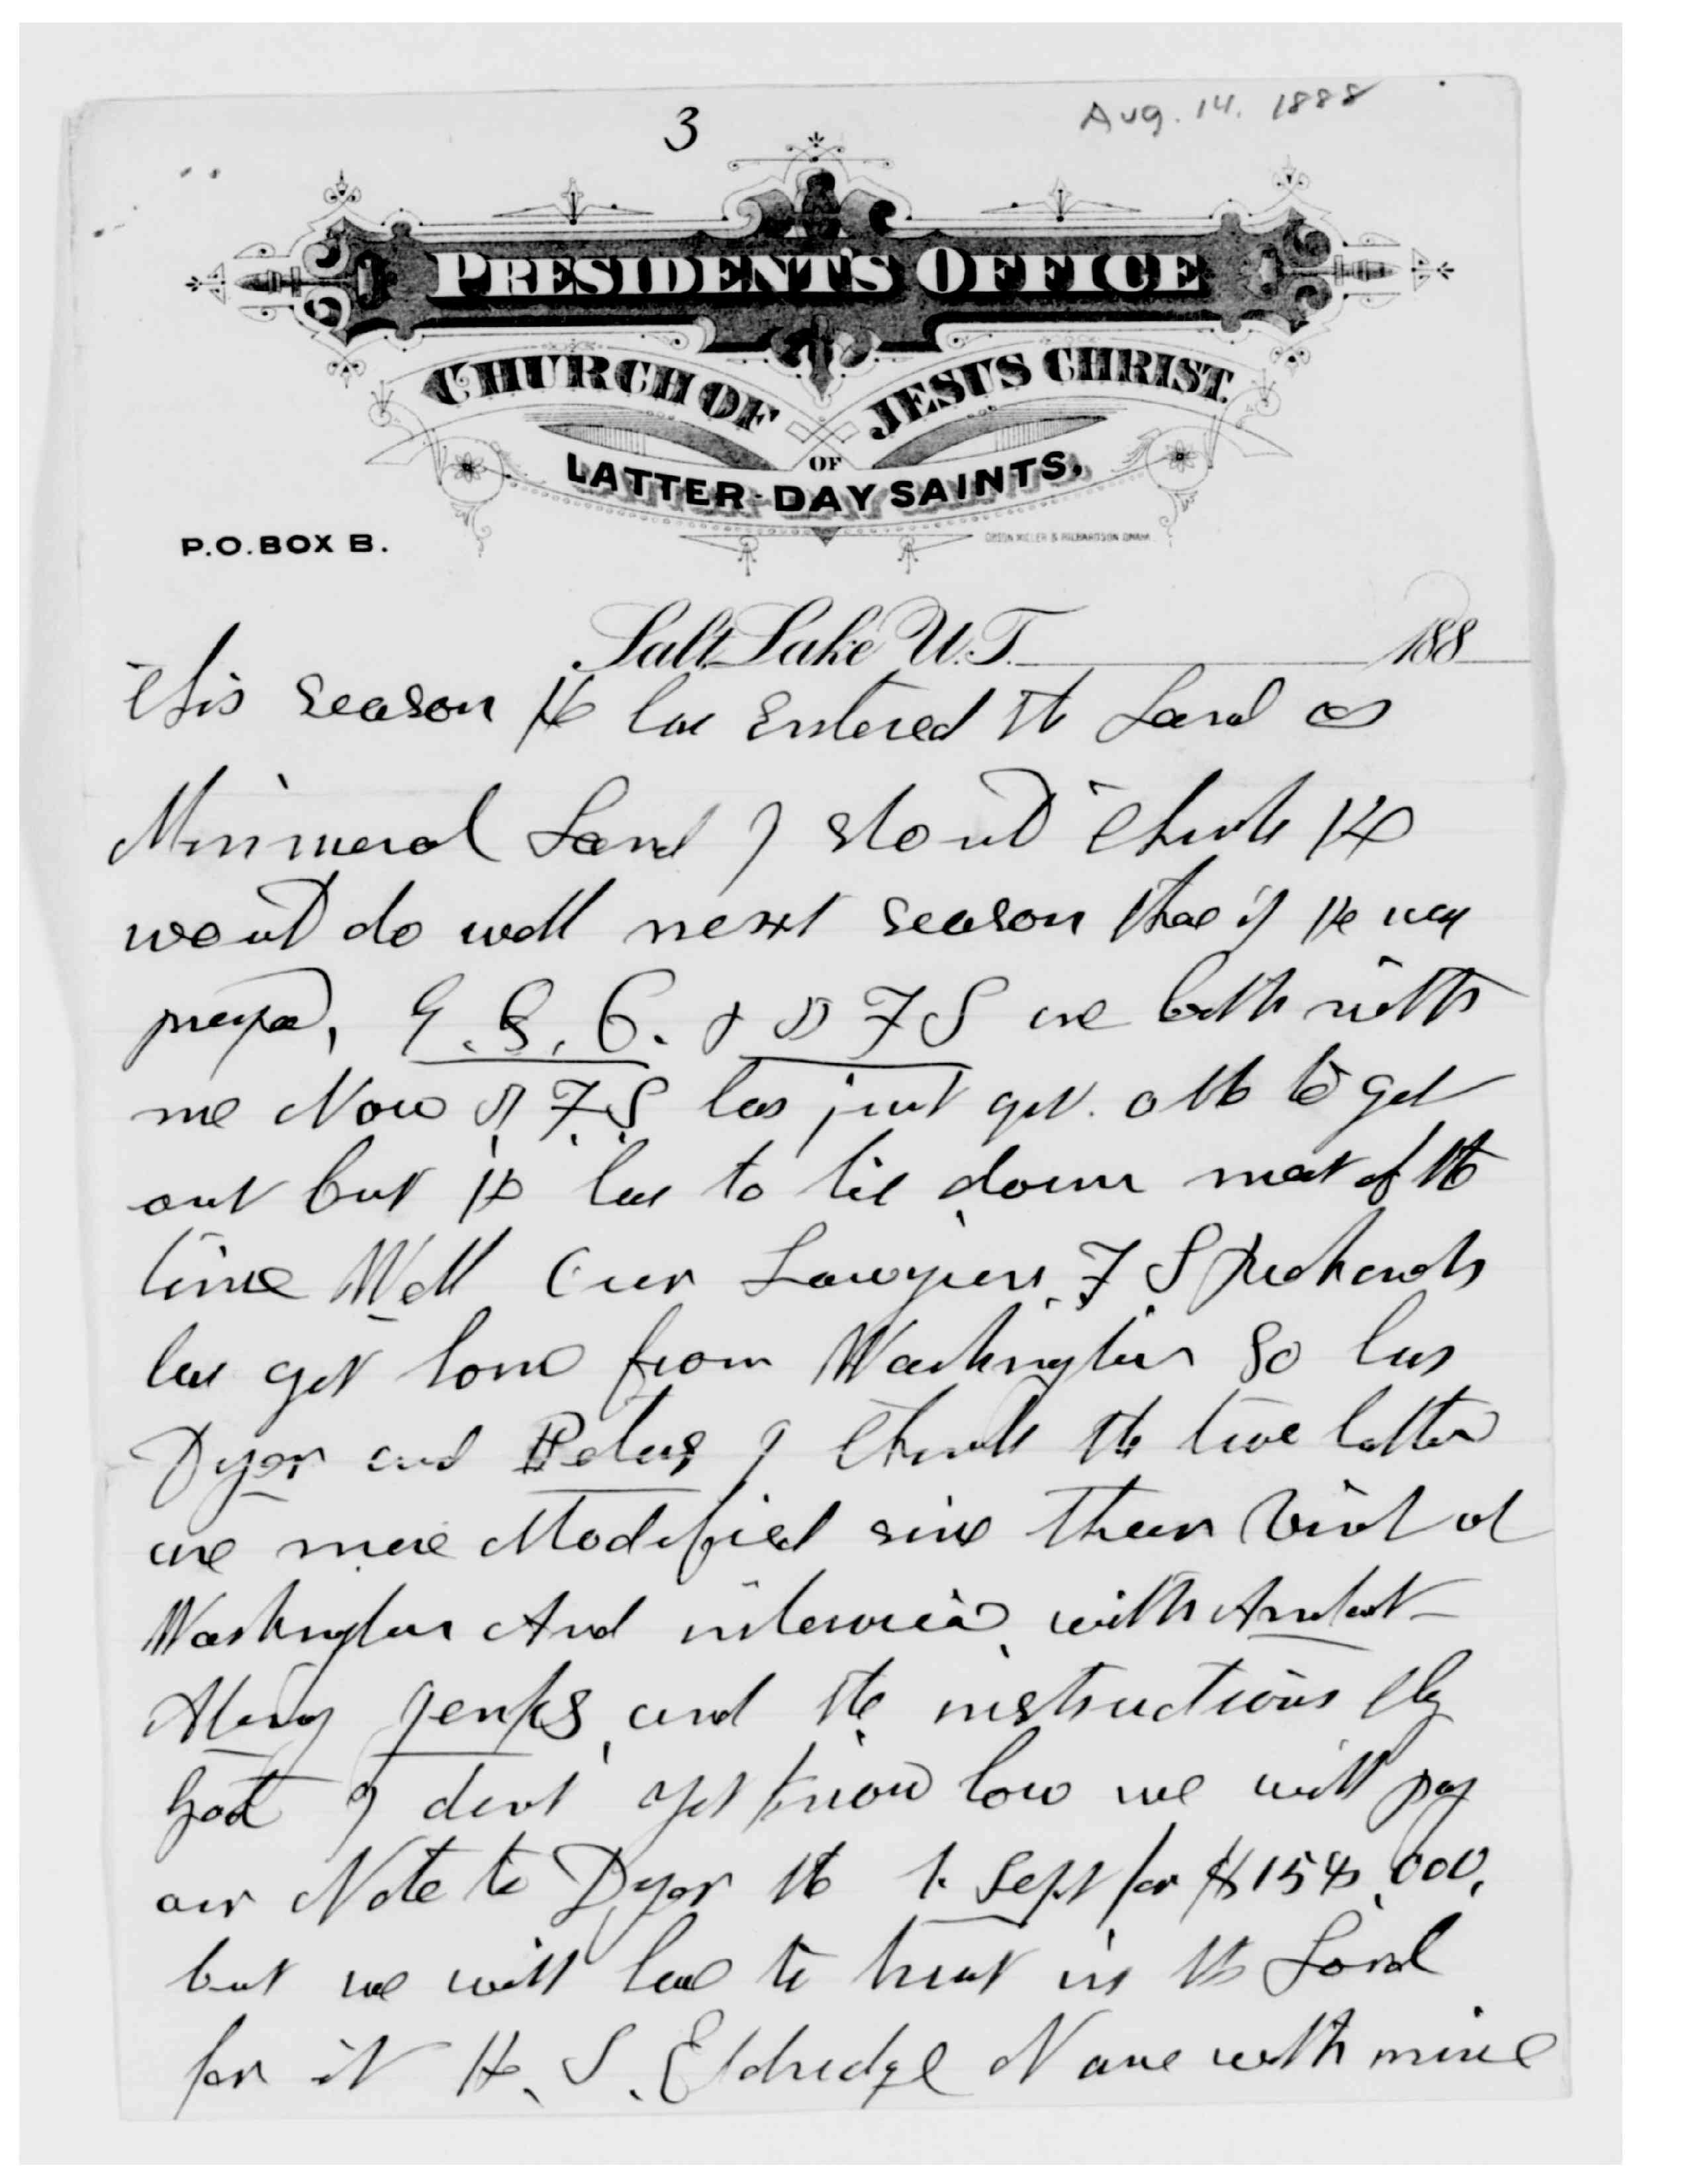 3
Aug. 14. 1888
PRESIDENT'S OFFICE
CHURCH OF JESUS CHRIST
OF
LATTER-DAY SAINTS.
P.O. BOX B.
Salt Lake U.T. 188
this season He has Entered the Land as
Minineral Land I should think He
would do well next season there if He was
G. Q. C. & J F S are both with
me Now J. F. S. has just got able to get
out but He has to lie down most of the
time Well Our Lawyers F S Richards
has got home from Washington So has
Dyer and Peters I think the two latter
are more Modified since their visit at
Washington And interview with
Jenks and the instructions they
had I dont yet know how we will pay
our Note to Dyer the 1. Sept for $154,000,
but we will have to trust in the Lord
for it H. S. Eldredge Name with mine